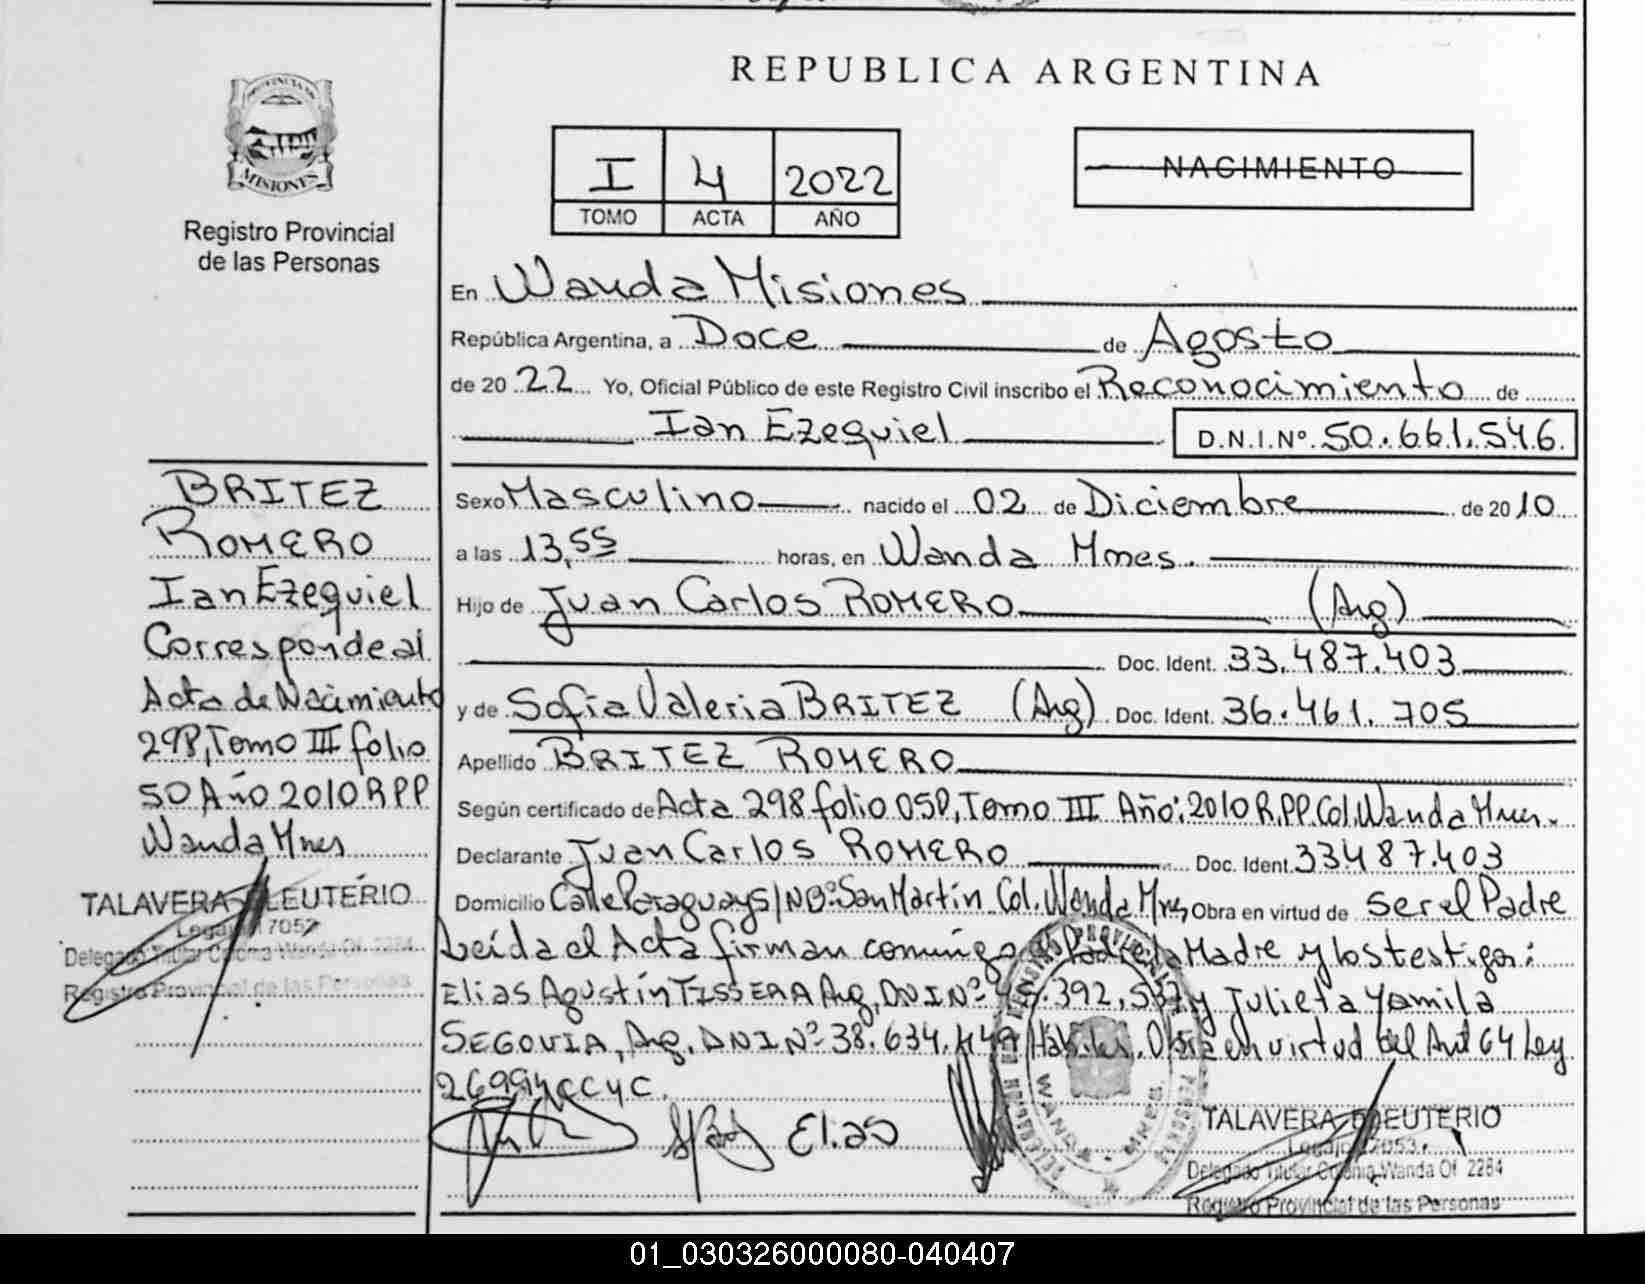 REPUBLICA ARGENTINA
MISIONES
Registro Provincial
de las Personas
I 4 2022
TOMO ACTA AÑO
NACIMIENTO
En Wanda Misiones
República Argentina, a Doce de Agosto
de 2022 Yo, Oficial Público de este Registro Civil inscribo el Reconocimiento de
Ian Ezequiel D.N.I.Nº 50.661.546.
BRITEZ
ROMERO
Ian Ezequiel
Corresponde al
Acta de Nacimiento
298, Tomo III folio
50 Año 2010 RPP
Wanda Mnes
TALAVERA ELEUTERIO
Delegado Titular Colonia Wanda Of. 2284
Registro Provincial de las Personas
Sexo Masculino nacido el 02 de Diciembre de 2010
a las 13,55 horas, en Wanda Mnes.
Hijo de Juan Carlos ROMERO (Arg)
Doc. Ident. 33.487.403
y de Sofia Valeria BRITEZ (Arg) Doc. Ident. 36.461.705
Apellido BRITEZ ROMERO
Según certificado de Acta 298 folio 050, Tomo III Año: 2010 R.PP. Col. Wanda Mnes.
Declarante Juan Carlos ROMERO Doc. Ident. 33487.403
Domicilio Calle Paraguay S/Nº Bº San Martín Col. Wanda Mnes, Obra en virtud de Ser el Padre
Leída el Acta firman conmigo el Padre, la Madre y los testigos:
Elias Agustín TISSERA Arg, DNI Nº .392.537 y Julieta Yamila
SEGOVIA, Arg. DNI Nº 38.634.449 Hábiles. Obra en virtud del Art 64 Ley
26994 CCYC.
Elias
WANDA - MNES
TALAVERA ELEUTERIO
Legajo 17053
Delegado Titular Colonia Wanda Of. 2284
Registro Provincial de las Personas
01_030326000080-040407